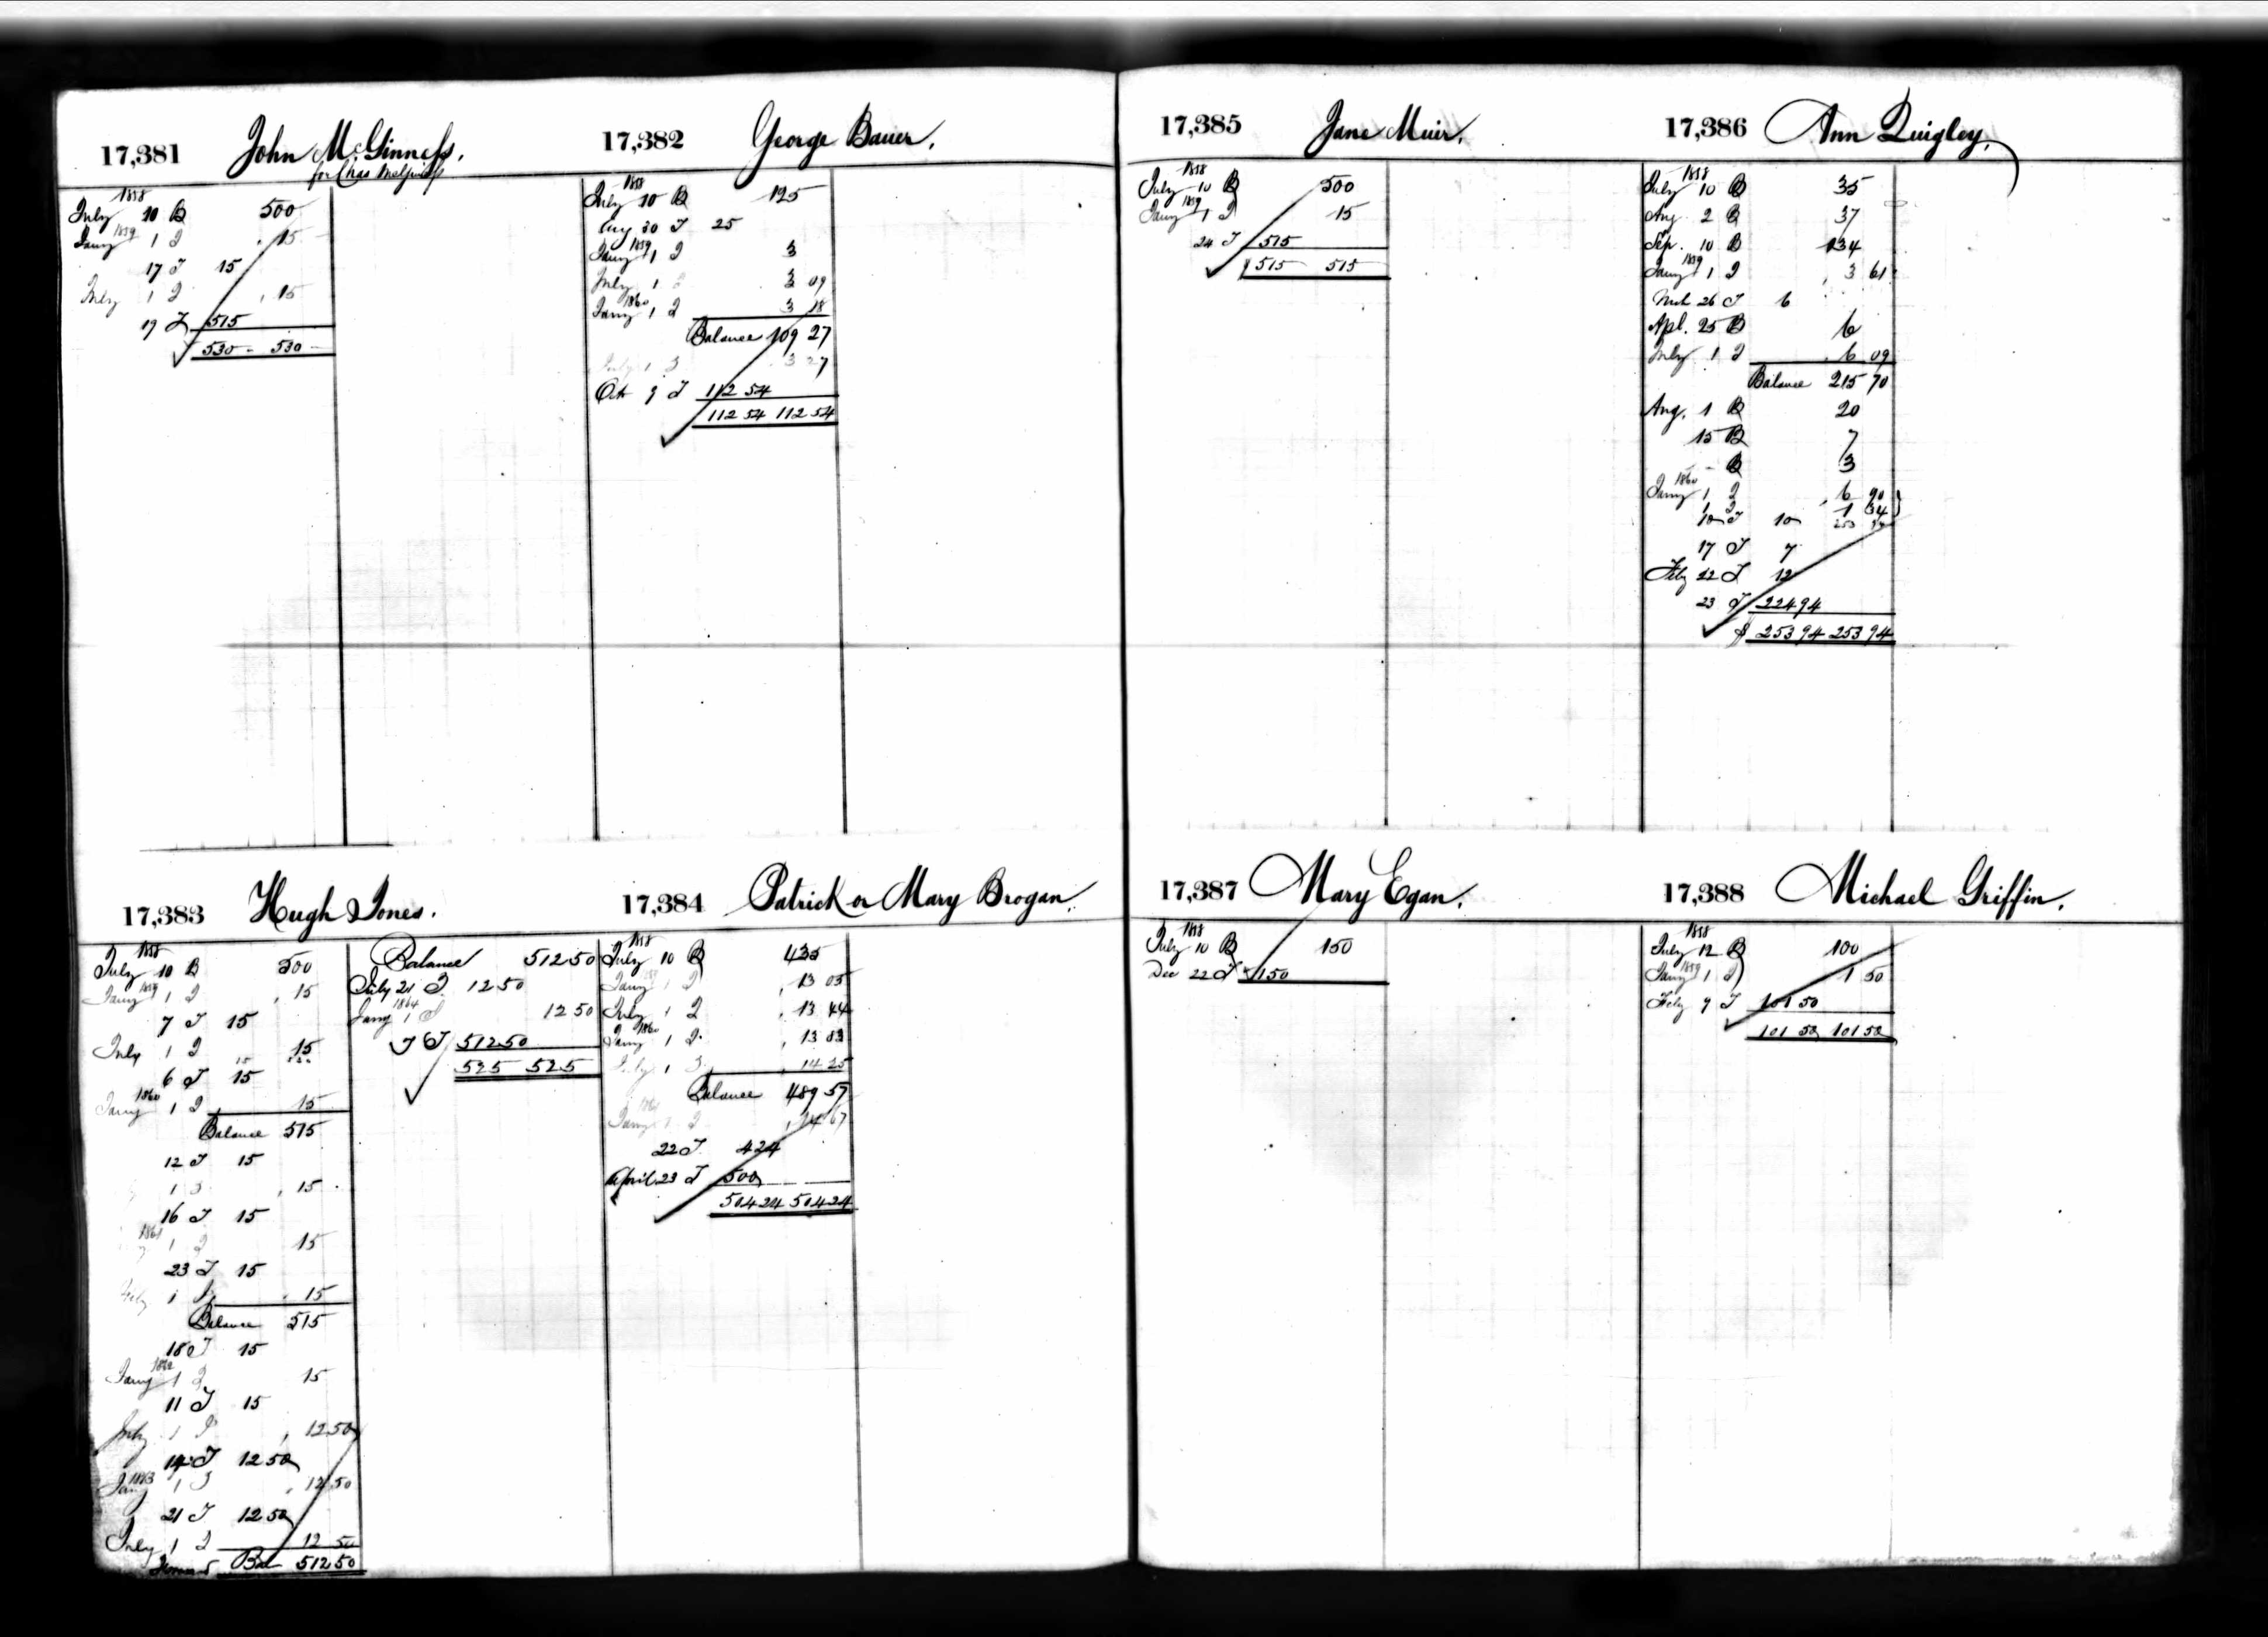 17,381 John McGinness.
for Chas McGinness
1858
July 10 B 500
1859
Jany 1 I 15
17 T 15
July 1 I 15
19 T 515
530 - 530 -
17,382 George Bauer.
1858
July 10 B 125
Aug 30 T 25
1859
Jany 1 I 3
July 1 I 3 09
1860
Jany 1 I 3 18
Balance 109 27
July 1 I 3 27
Oct 9 T 112 54
112 54 112 54
17,383 Hugh Jones.
1858
July 10 B 500
1859
Jany 1 I 15
7 T 15
July 1 I 15
6 T 15
1860
Jany 1 I 15
Balance 515
12 T 15
1 I 15
16 T 15
1861
1 I 15
23 T 15
July 1 I 15
Balance 515
18 T 15
1862
Jany 1 I 15
11 T 15
July 1 I 12 50
14 T 12 50
1863
Jany 1 I 12 50
21 T 12 50
July 1 I 12 50
Bal 512 50
Balance 512 50
July 21 T 12 50
1864
Jany 1 I 12 50
7 T 512 50
525 525
17,384 Patrick or Mary Brogan.
1858
July 10 B 435
Jany 1 I 13 05
July 1 I 13 44
1860
Jany 1 I 13 83
July 1 I 14 25
Balance 489 57
1861
Jany 1 I 14 67
22 T 4 24
April 23 T 500
504 24 504 24
17,385 Jane Muir.
1858
July 10 B 500
1859
Jany 1 I 15
24 T 515
$ 515 515
17,386 Ann Quigley.
1858
July 10 B 35
Aug 2 B 37
Sep. 10 B 134
1859
Jany 1 I 3 61
Mch 26 T 6
Apl. 25 B 6
July 1 I 6 09
Balance 215 70
Aug. 1 B 20
15 B 7
- B 3
1860
Jany 1 I 6 90
1 I 1 34
10 T 10 253 94
17 T 7
Feby 22 T 12
23 T 224 94
$ 253 94 253 94
17,387 Mary Egan.
1858
July 10 B 150
Dec 22 T 150
17,388 Michael Griffin.
1858
July 12 B 100
1859
Jany 1 I 1 50
Feby 9 T 101 50
101 50 101 50